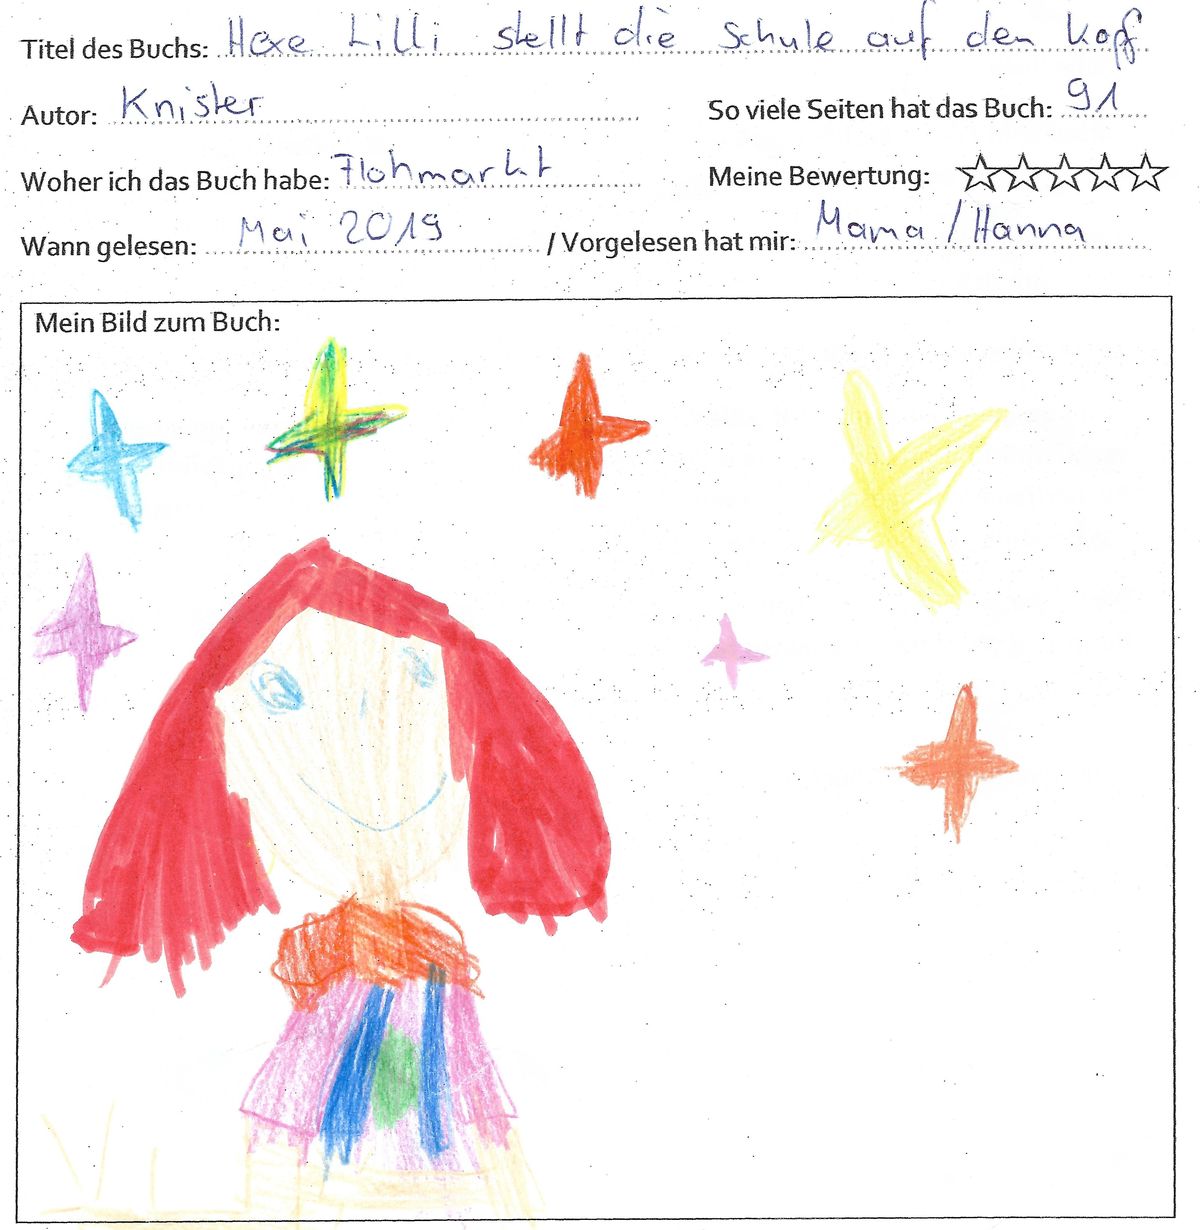 Titel des Buchs: Hexe Lilli stellt die Schule auf den Kopf
Autor: Knister So viele Seiten hat das Buch: 91
Woher ich das Buch habe: Flohmarkt Meine Bewertung:
Wann gelesen: Mai 2019 / Vorgelesen hat mir: Mama / Hanna
Mein Bild zum Buch: